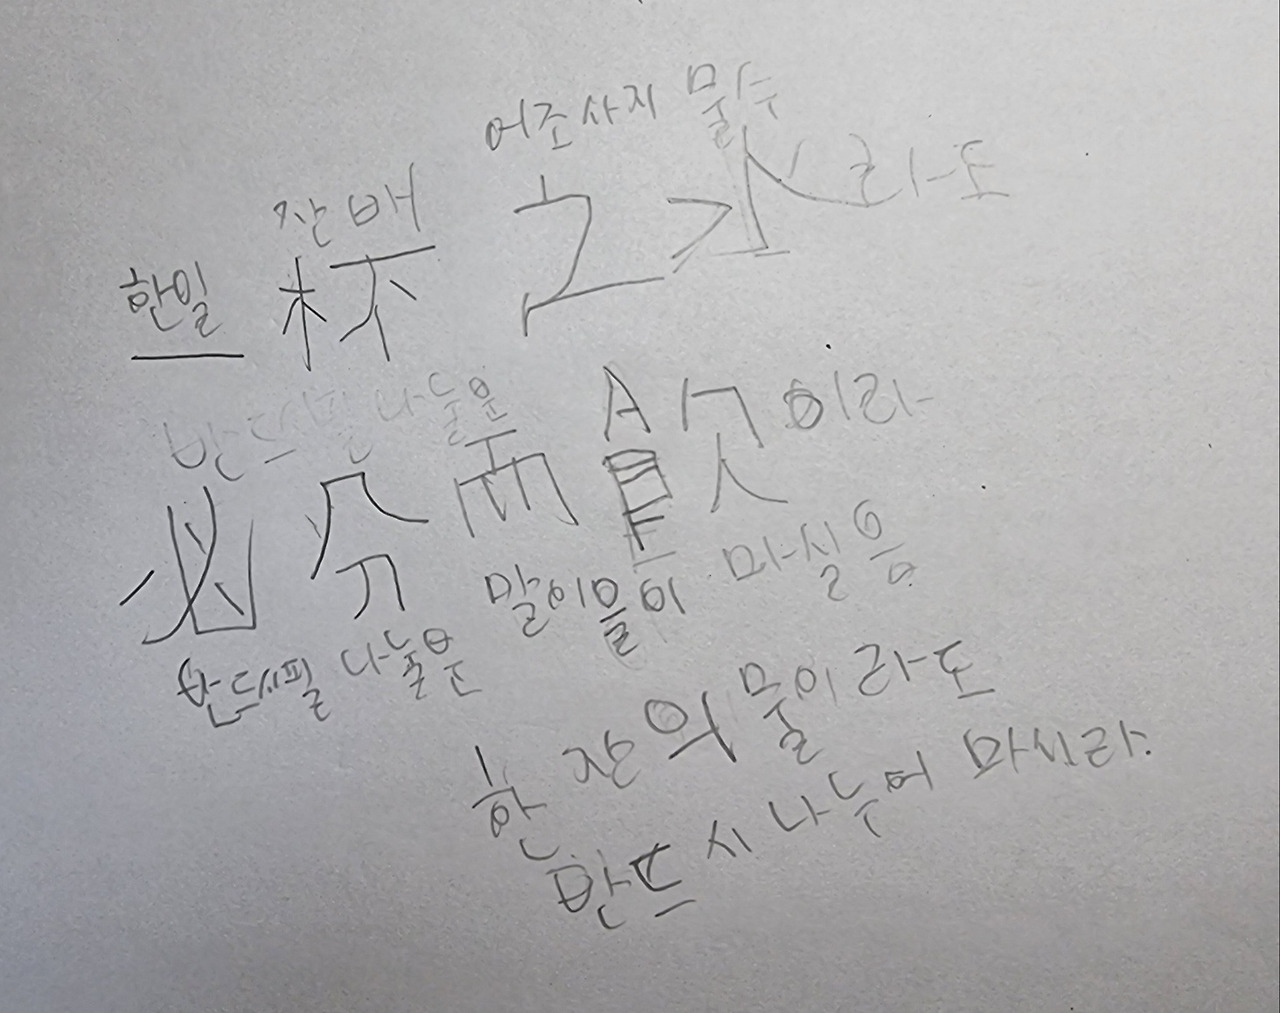 어조사지 물수
한일 잔배
一 杯 之 水 라도
반드시필 나눌분
必 分 而 食 이라
반드시필 나눌분 말이을이 마실음
한 잔의 물이라도
반드시 나누어 마시라.